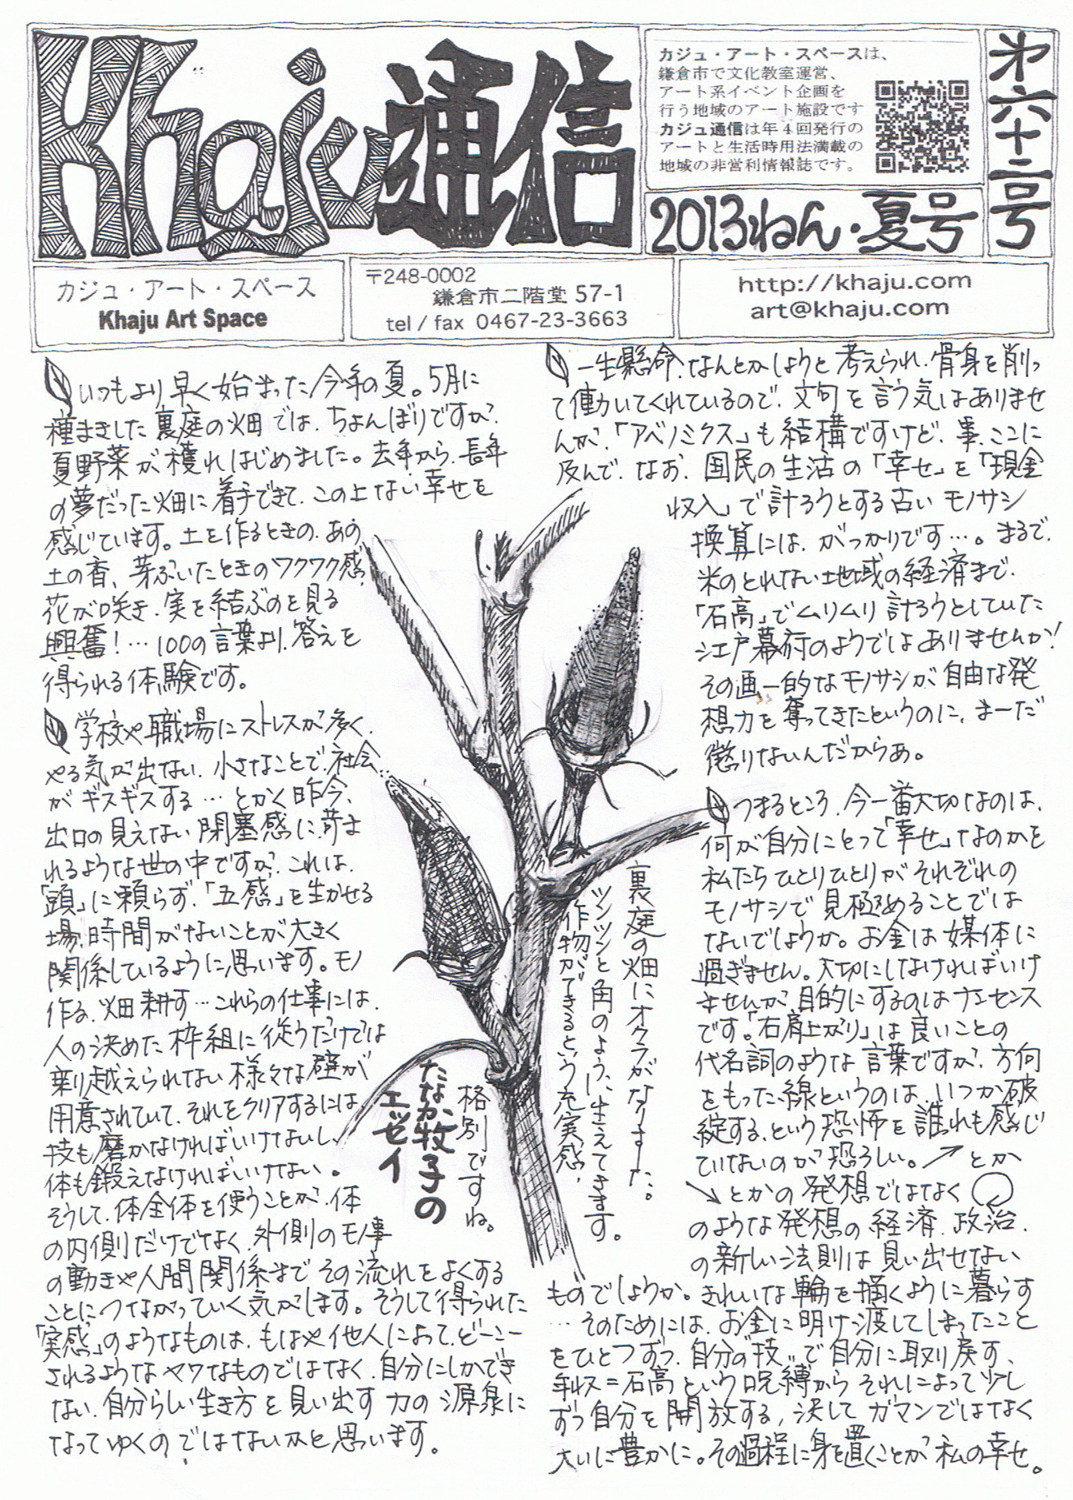 Khaju通信
カジュ・アート・スペースは、
鎌倉市で文化教室運営、
アート系イベント企画を
行う地域のアート施設です
カジュ通信は年4回発行の
アートと生活時用法満載の
地域の非営利情報誌です。
2013ねん・夏号
第六十二号
カジュ・アート・スペース
Khaju Art Space
〒248-0002
鎌倉市二階堂 57-1
tel / fax 0467-23-3663
http://khaju.com
art@khaju.com
いつもより早く始まった今年の夏。5月に
種まきした裏庭の畑では、ちょんぼりですが、
夏野菜が穫れはじめました。去年から、長年
の夢だった畑に着手できて、この上ない幸せを
感じています。土を作るときの、あの
土の香、芽ぶいたときのワクワク感、
花が咲き、実を結ぶのを見る
興奮!…100の言葉より、答えを
得られる体験です。
学校や職場にストレスが多く、
やる気が出ない、小さなことで、社会
がギスギスする…とかく昨今、
出口の見えない閉塞感に苛ま
れるような世の中ですが、これは、
「頭」に頼らず、「五感」を生かせる
場、時間がないことが大きく
関係しているように思います。モノ
作る、畑耕す…これらの仕事には、
人の決めた枠組に従うだけでは
乗り越えられない様々な壁が
用意されていて、それをクリアするには
技も磨かなければいけないし、
体も鍛えなければいけない。
そうして、体全体を使うことが、体
の内側だけでなく、外側のモノ事
の動きや人間関係まで その流れをよくする
ことにつながっていく気がします。そうして得られた
「実感」のようなものは、もはや他人によって、どーこー
されるようなヤワなものではなく、自分にしかでき
ない、自分らしい生き方を見い出す力の源泉に
なってゆくのではないかと思います。
裏庭の畑にオクラがなりました。
ツンツンと角のように生えてきます。
作物ができるという充実感、
格別ですね。
たなか牧子の
エッセイ
一生懸命、なんとかしようと考えられ、骨身を削っ
て働いてくれているので、文句を言う気はありませ
んが、「アベノミクス」も結構ですけど、事、ここに
及んで、なお、国民の生活の「幸せ」を「現金
収入」で計ろうとする古いモノサシ
換算には、がっかりです…。まるで、
米のとれない地域の経済まで、
「石高」でムリムリ計ろうとしていた
江戸幕府のようではありませんか!
その画一的なモノサシが、自由な発
想力を奪ってきたというのに、まーだ
懲りないんだからあ。
つまるところ、今一番大切なのは、
何が自分にとって「幸せ」なのかを
私たちひとりひとりがそれぞれの
モノサシで見極めることでは
ないでしょうか。お金は媒体に
過ぎません。大切にしなければいけ
ませんが、目的にするのはナンセンス
です。「右肩上がり」は良いことの
代名詞のような言葉ですが、方向
をもった線というのは、いつか破
綻する、という恐怖を誰れも感じ
ていないのが恐ろしい。↗とか
↘とかの発想ではなく○
のような発想の経済、政治、
の新しい法則は見い出せない
ものでしょうか。きれいな輪を描くように暮らす
…そのためには、お金に明け渡してしまったこと
をひとつずつ、自分の"技"で自分に取り戻す、
年収=石高という呪縛からそれによって少し
ずつ自分を開放する、決してガマンではなく
大いに豊かに。その過程に身を置くことが私の幸せ。